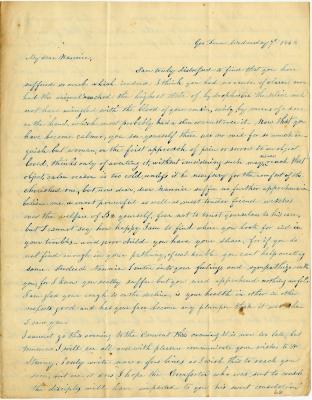 Geo Town Wednesday 7th 184
My dear Nannie,
I am truly distressed to find that you have
suffered so much which indeed, I think you had no cause of alarm even
had the animal reached the highest state of hydrophobia the saliva could
not have mingled with the blood of your veins, only by means of a sore
on the hand, which most probably had a skin over it. Now that you
have become calmer, you see yourself there was no need for so much an-
guish but woman, on the first approach of pain or sorrow to an object
loved, thinks only of averting it, without considering such may never reach that
object, calm reason is too cold, unless it be necessary for the comfort of the
cherished one, but now dear, dear Nannie suffer no further apprehension
believe me a most powerful as well as most tender friend watches
over the welfare of you yourself, fear not to trust yourself to his care,
but I must say how happy I am to find where you look for aid in
your troubles and poor child you have your share, for if you do
not find enough in your pathway, good health you can't help meeting
some. Indeed Nannie I enter into your feelings and sympathize with
you, for I know you really suffer but you need apprehend nothing
I am glad your cough is on the decline, is your health in other
respects good and has your face become any plumper than it was when
I saw you.
I cannot go this evening to the Convent this evening it is now too late, but
tomorrow I will see all and with pleasure communicate your wishes to Sr
Stanny, I only write now a few lines as I wish this to reach you
soon, but now at ones I hope the Comforter who was sent to console
the disciples will have imparted to you his sweet consolation